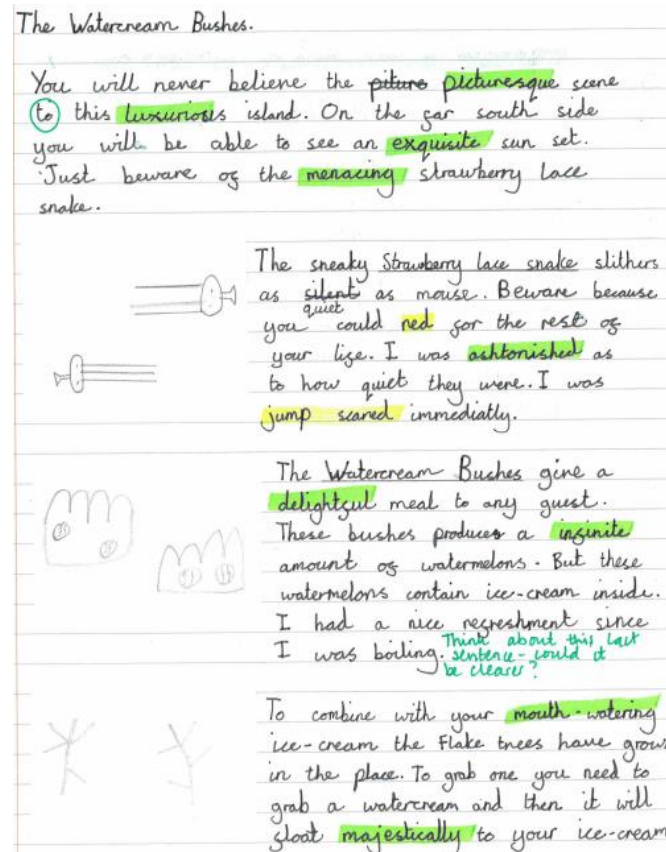 The Watercream Bushes.
You will never believe the piture picturesque scene
to this luxurious island. On the far south side
you will be able to see an exquisite sun set.
Just beware of the menacing strawberry lace
snake.
The sneaky Strawberry lace snake slithers
as silent as mouse. Beware because
quiet
you could red for the rest of
your life. I was ashtonished as
to how quiet they were. I was
jump scared immediatly.
The Watercream Bushes give a
delightful meal to any guest.
These bushes produces a infinite
amount of watermelons. But these
watermelons contain ice-cream inside.
I had a nice refreshment since
I was boiling. Think about this last
sentence - could it
be clearer?
To combine with your mouth-watering
ice-cream the Flake trees have grown
in the place. To grab one you need to
grab a watercream and then it will
float majestically to your ice-cream